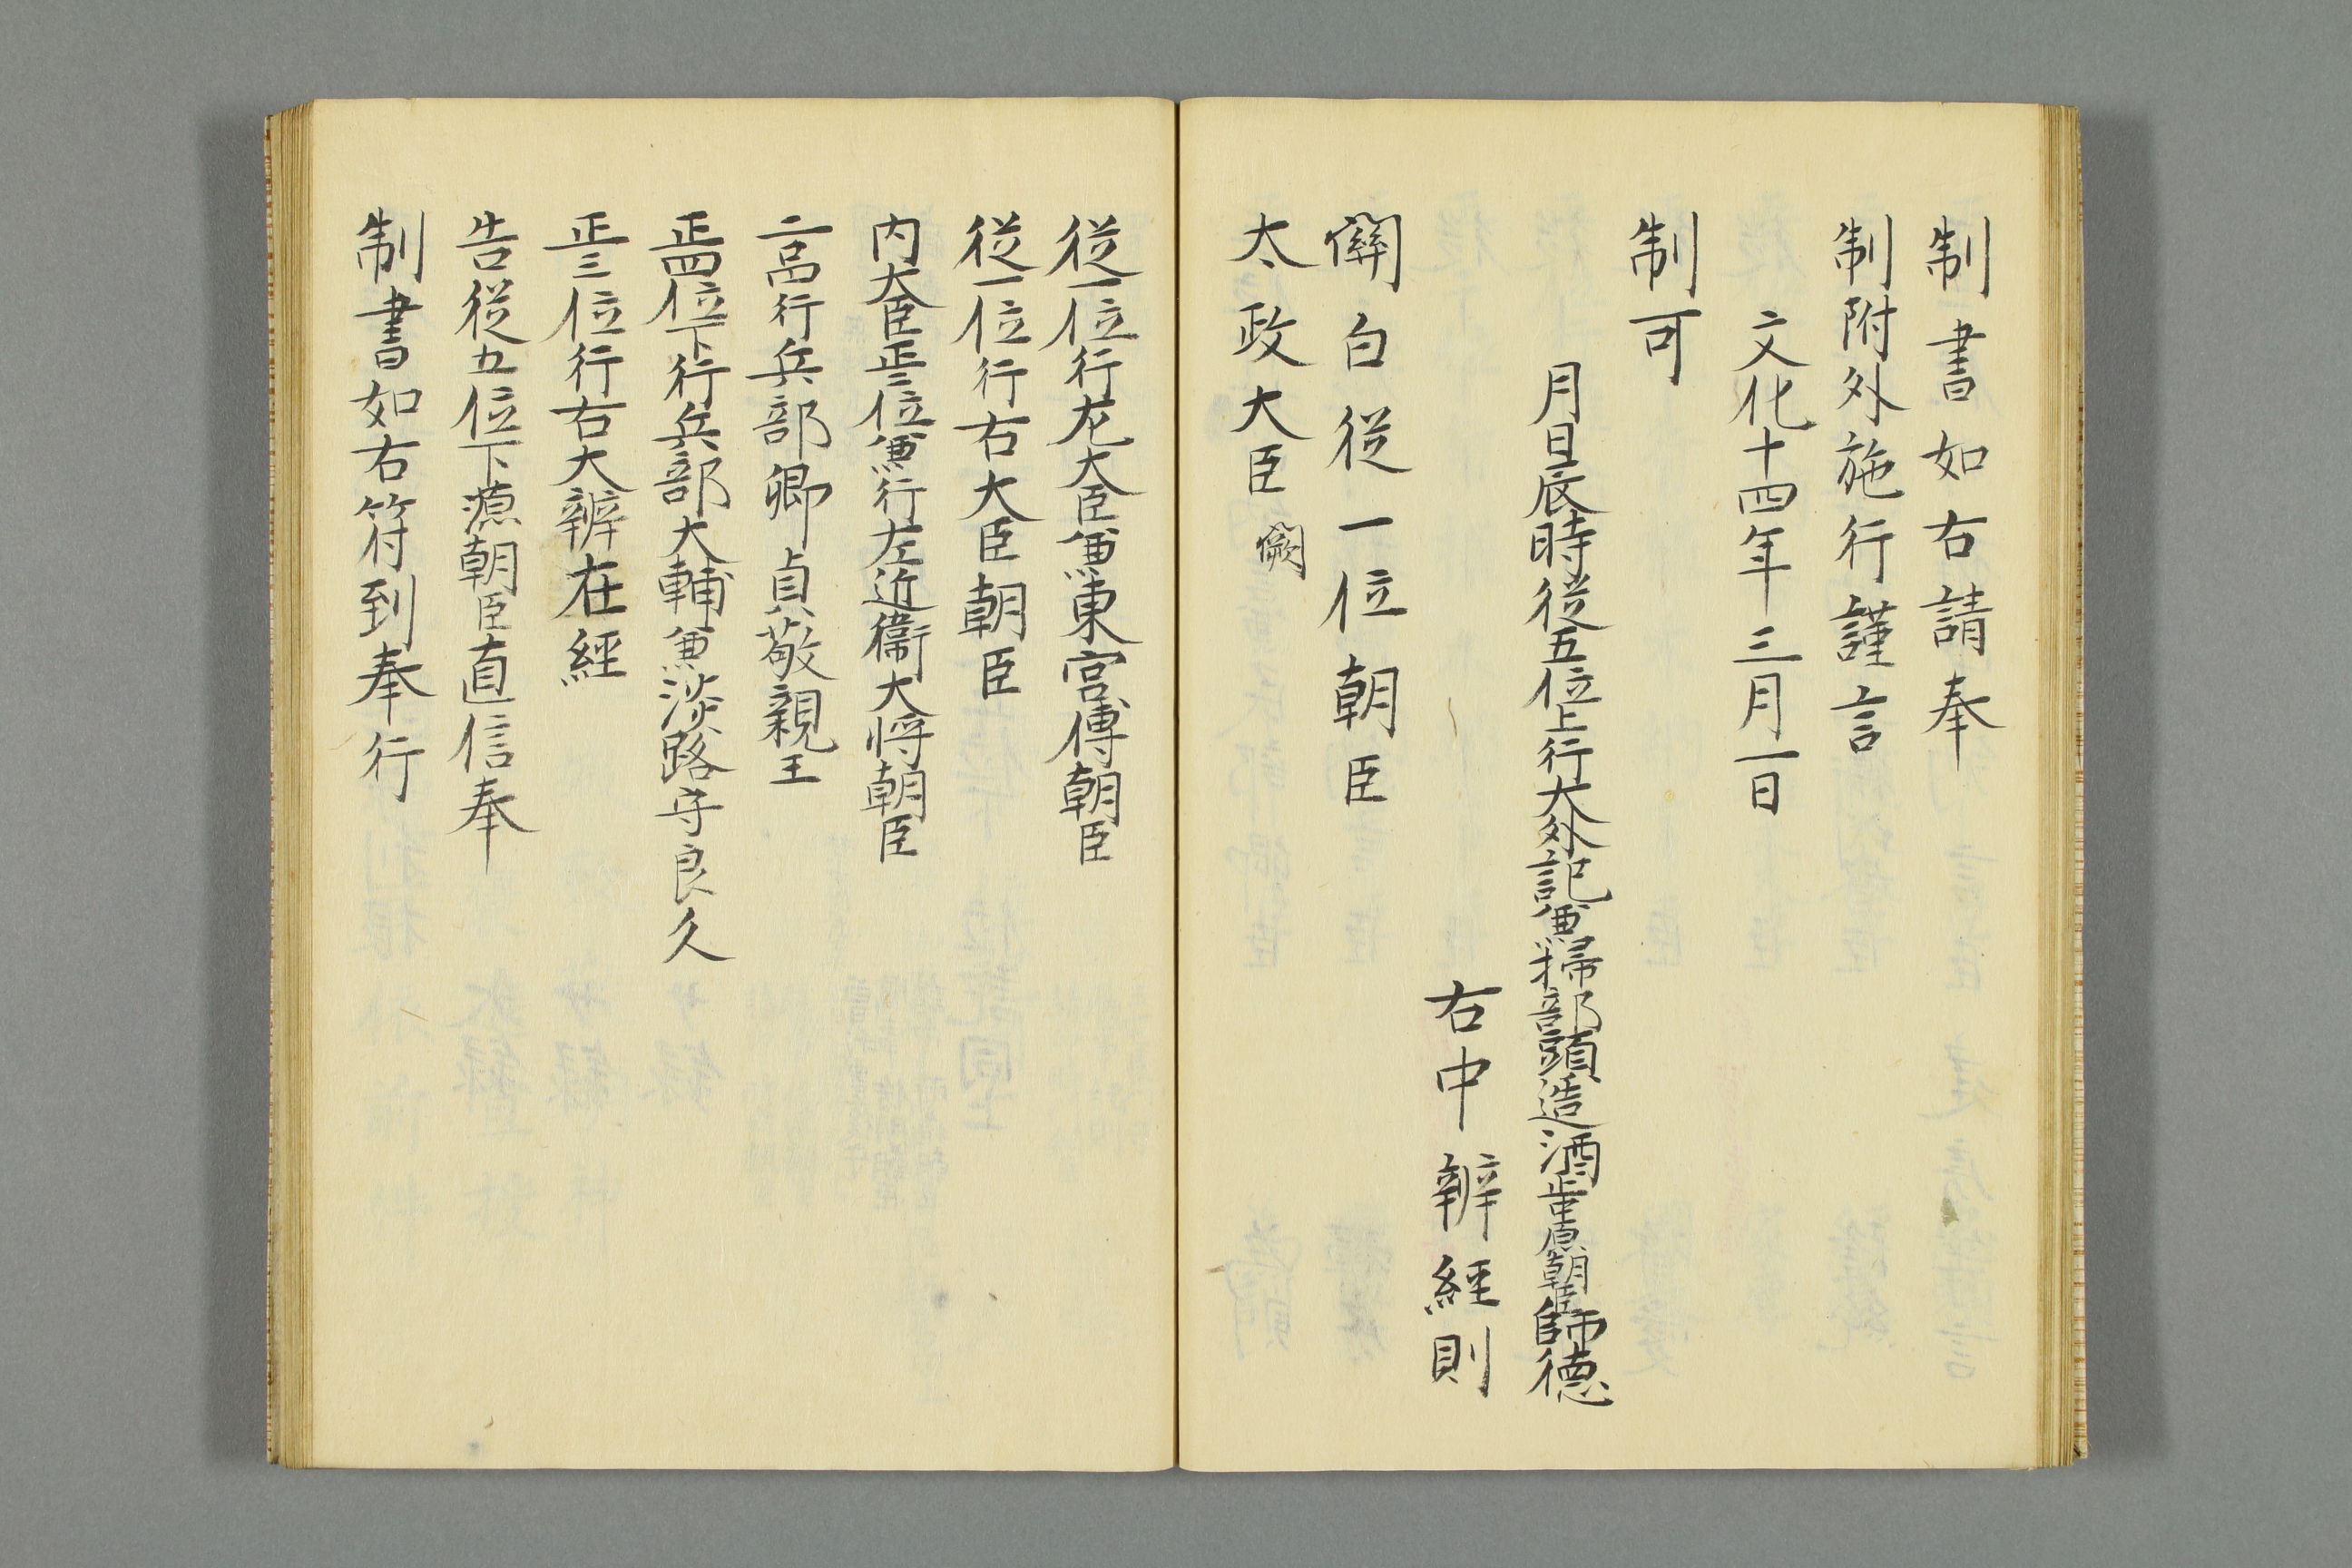 制書如右請奉
制附外施行謹言
文化十四年三月一日
制可
月日辰時従五位上行大外記兼掃部頭造酒正中原朝臣師徳
右中辨経則
関白従一位朝臣
太政大臣 闕
従一位行左大臣兼東宮傅朝臣
従一位行右大臣朝臣
内大臣正二位兼行左近衛大将朝臣
二品行兵部卿貞敬親王
正四位下行兵部大輔兼淡路守良久
正三位行右大辨在経
告従五位下源朝臣直信奉
制書如右符到奉行